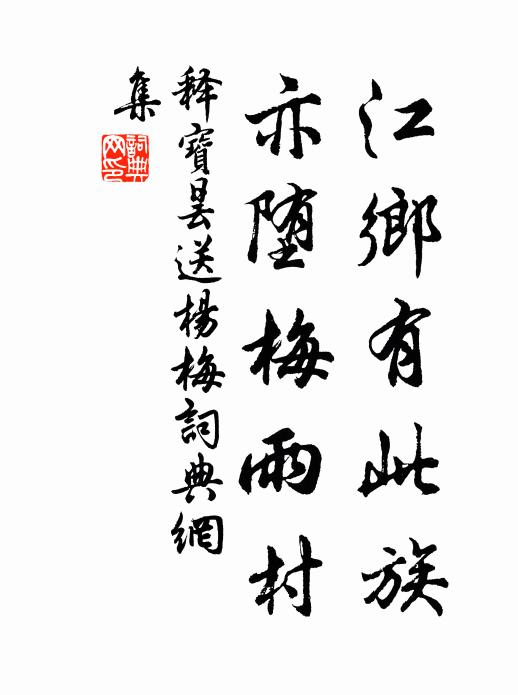 江鄉有此族
亦堕梅雨村
释寶曇送楊梅詞典網
集
詞典網印